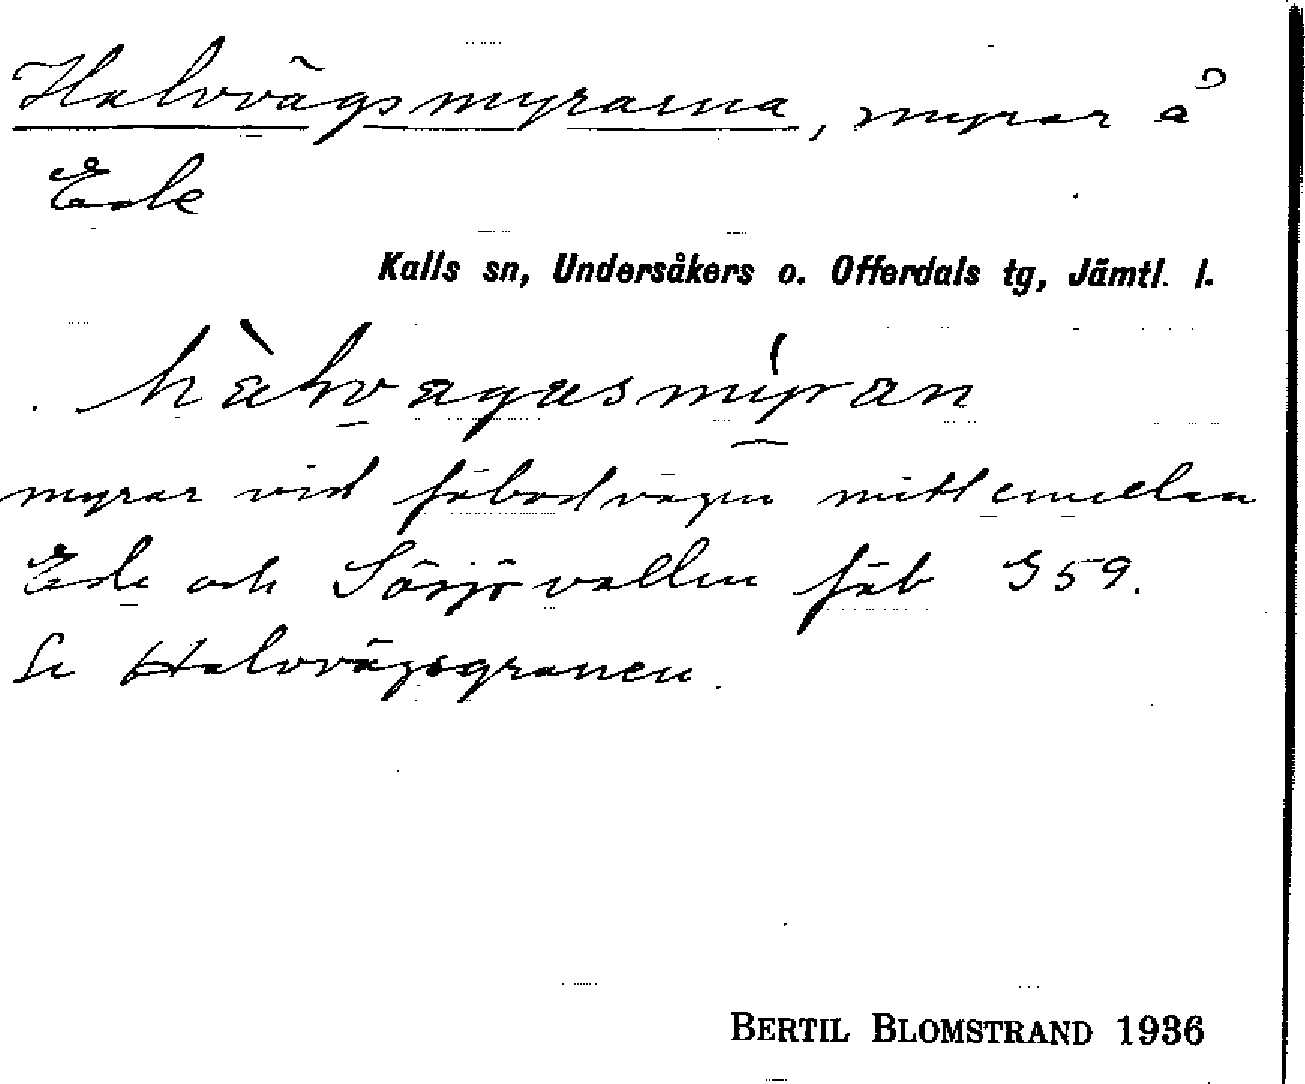 Halvvägsmyrarna, myrar å
Ede
Kalls sn, Undersåkers o. Offerdals tg, Jämtl. l.
hàlvægæsmýran
myrar vid fäbodvägen mitt emellan
Ede och Sösjövallen fäb G59.
Se Halvvägsgranen.
BERTIL BLOMSTRAND 1936